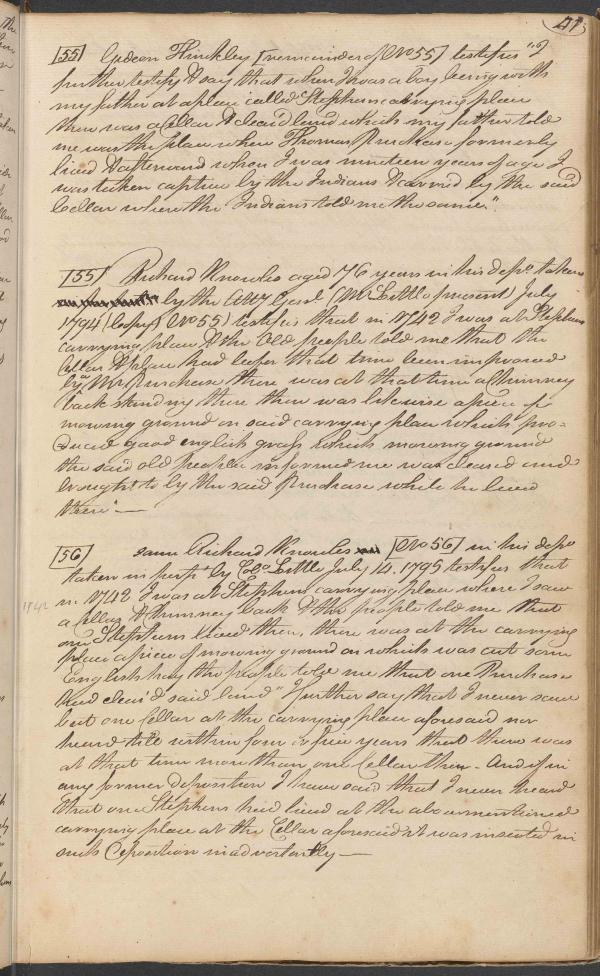 41
[55] Gideon Hinckley [remainder of No 55] testifies "I
further testify & say that when I was a boy being with
my father at a place called Stephens carrying place
there was a Cellar & clear'd land which my father told
me was the place where Thomas Purchase formerly
lived & afterward when I was nineteen years of age I
was taken captive by the Indians & carried by the said
Cellar where the Indians told me the same."
[55] Richard Knowles aged 76 years in his depo. taken
by the Atty Genl (Mr Little present) July
1794 (copy) No 55) testifies that in 1742 I was at Stephens
carrying place & the Old people told me that the
Cellar & place had before that time been improved
by a Mr Purchase there was at that time a Chimney
back standing there there was likewise a piece of
mowing ground on said carrying place which pro-
duced good english grass which mowing ground
the said old people informed me was cleared and
brought to by the said Purchase while he lived
there" —
[56] same Richard Knowles [No 56] in his depo
taken in perp. by Colo Little July 14. 1795 testifies that
1742
in 1742 I was at Stephens carrying place where I saw
a Cellar & Chimney back & the people told me that
one Stephens lived there, there was at the carrying
place a piece of mowing ground on which was cut some
English hay the people told me that one Purchase
had clear'd said land" I further say that I never saw
but one Cellar at the carrying place aforesaid nor
heard till within four or five years that there was
at that time more than one Cellar there - And if in
any former deposition I have said that I never heard
that one Stephens had lived at the abovementioned
carrying place at the Cellar aforesaid it was inserted in
such Deposition inadvertantly —